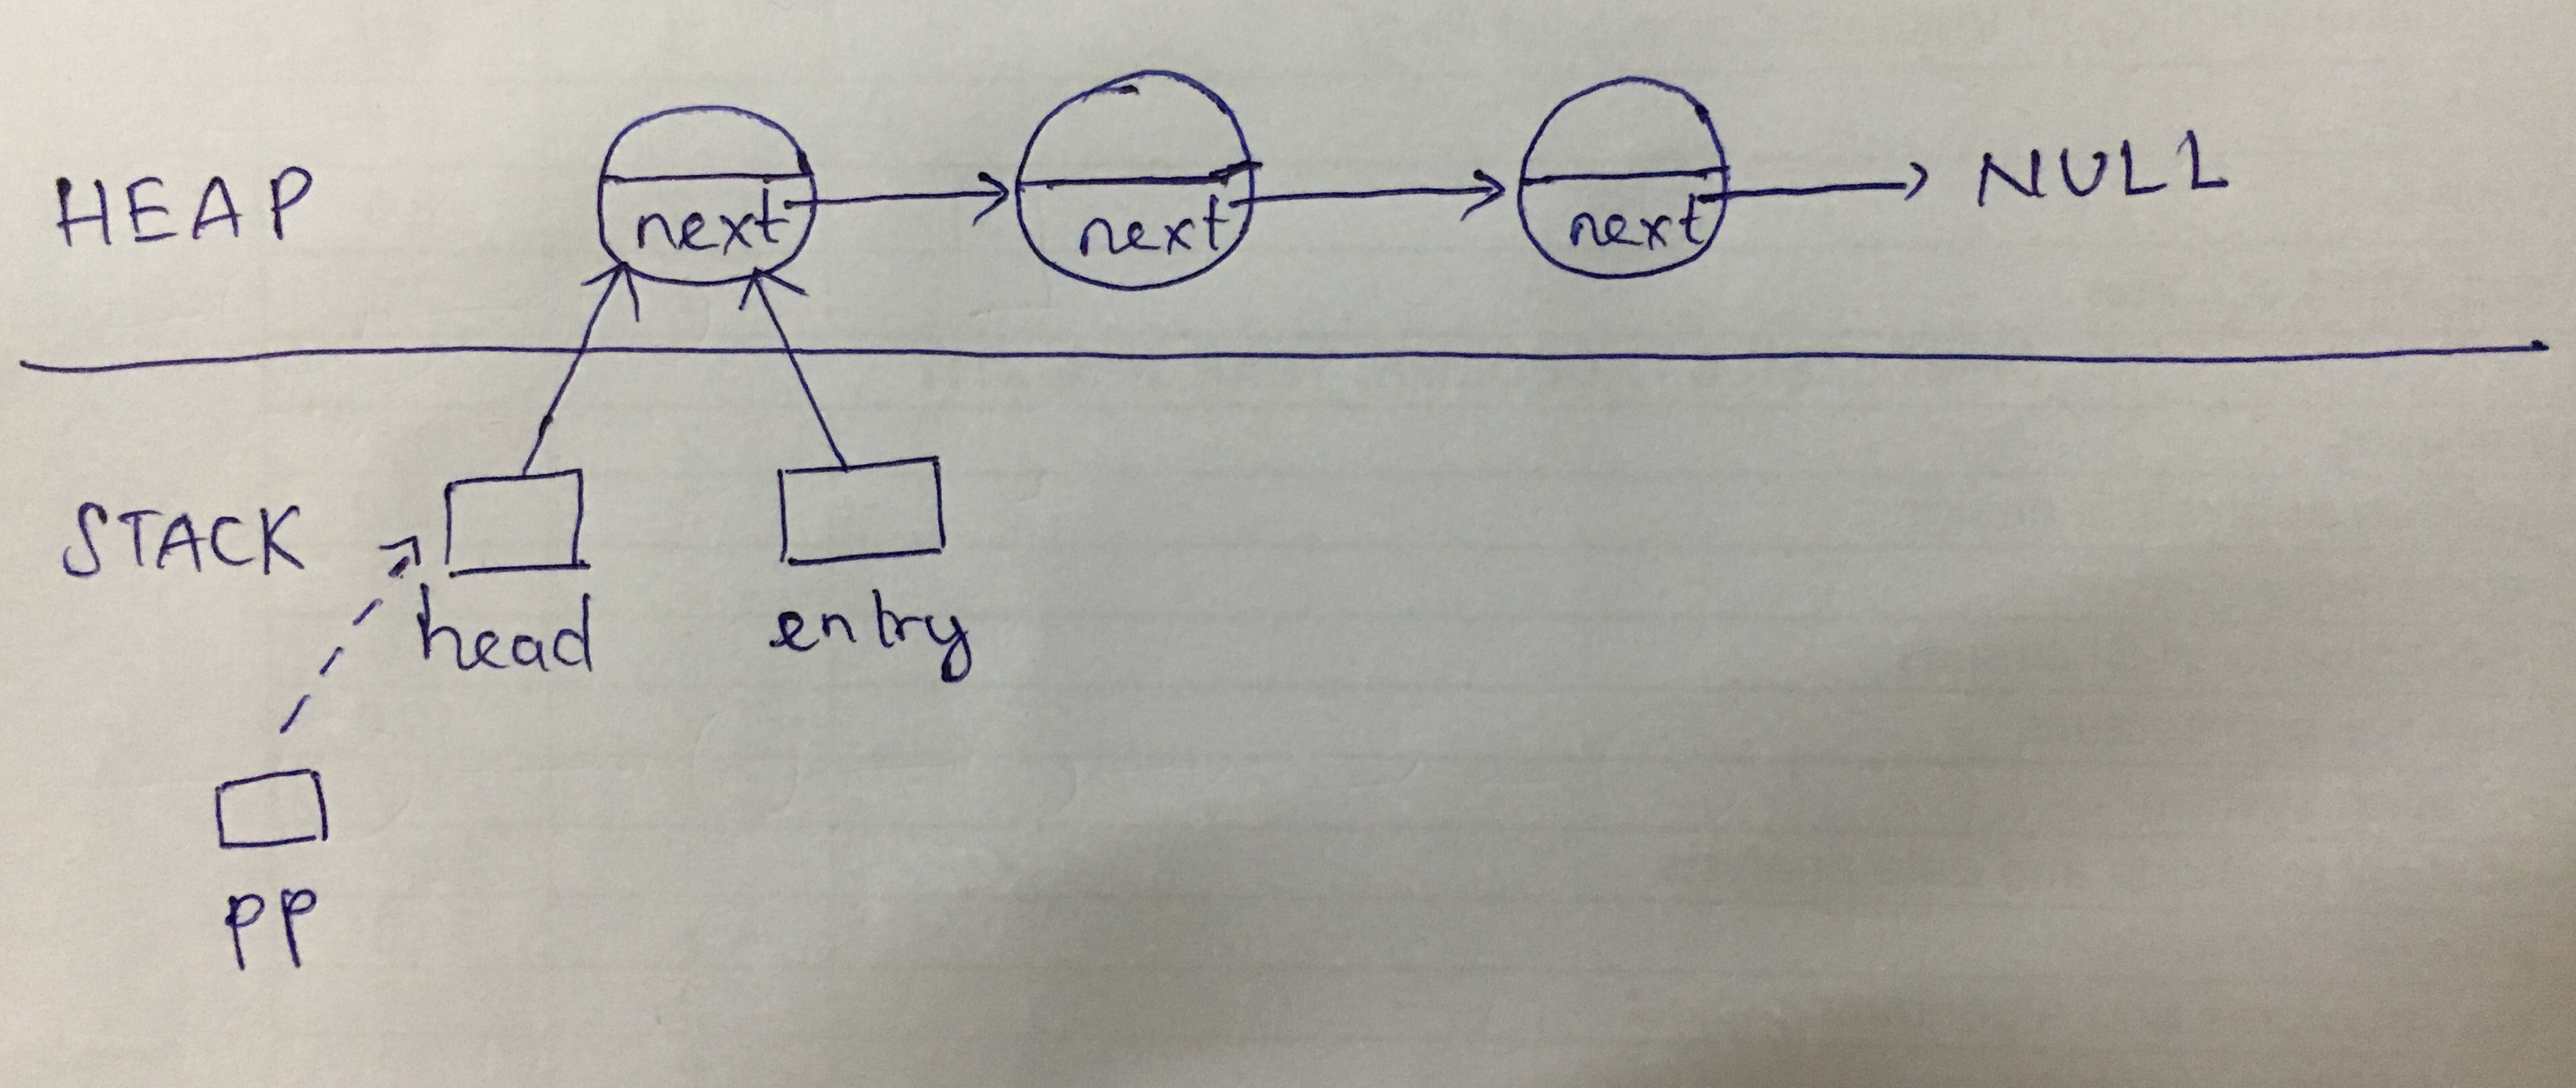 HEAP next next next NULL
STACK
head entry
pp